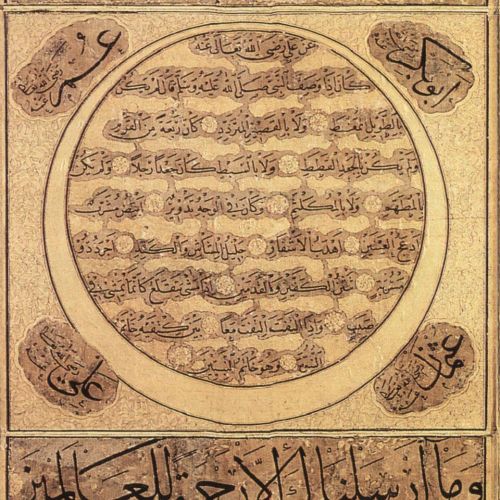 ابو بكر رضي الله عنه
عمر رضي الله عنه
عن علي رضي الله تعالى عنه
كان اذا وصف النبي صلى الله عليه وسلم قال لم يكن
بالطويل الممغط ولا بالقصير المتردد كان ربعة من القوم
ولم يكن بالجعد القطط ولا بالسبط كان جعدا رجلا ولم يكن
بالمطهم ولا بالمكلثم وكان في الوجه تدوير ابيض مشرب
ادعج العينين اهدب الاشفار جليل المشاش والكتد اجرد ذو
مسربة شثن الكفين والقدمين اذا مشى يتقلع كانما يمشي في
صبب واذا التفت التفت معا بين كتفيه خاتم
النبوة وهو خاتم النبيين
عثمان رضي الله عنه
علي رضي الله عنه
وَمَآ اَرْسَلْنَاكَ اِلَّا رَحْمَةً لِلْعَالَمِينَ